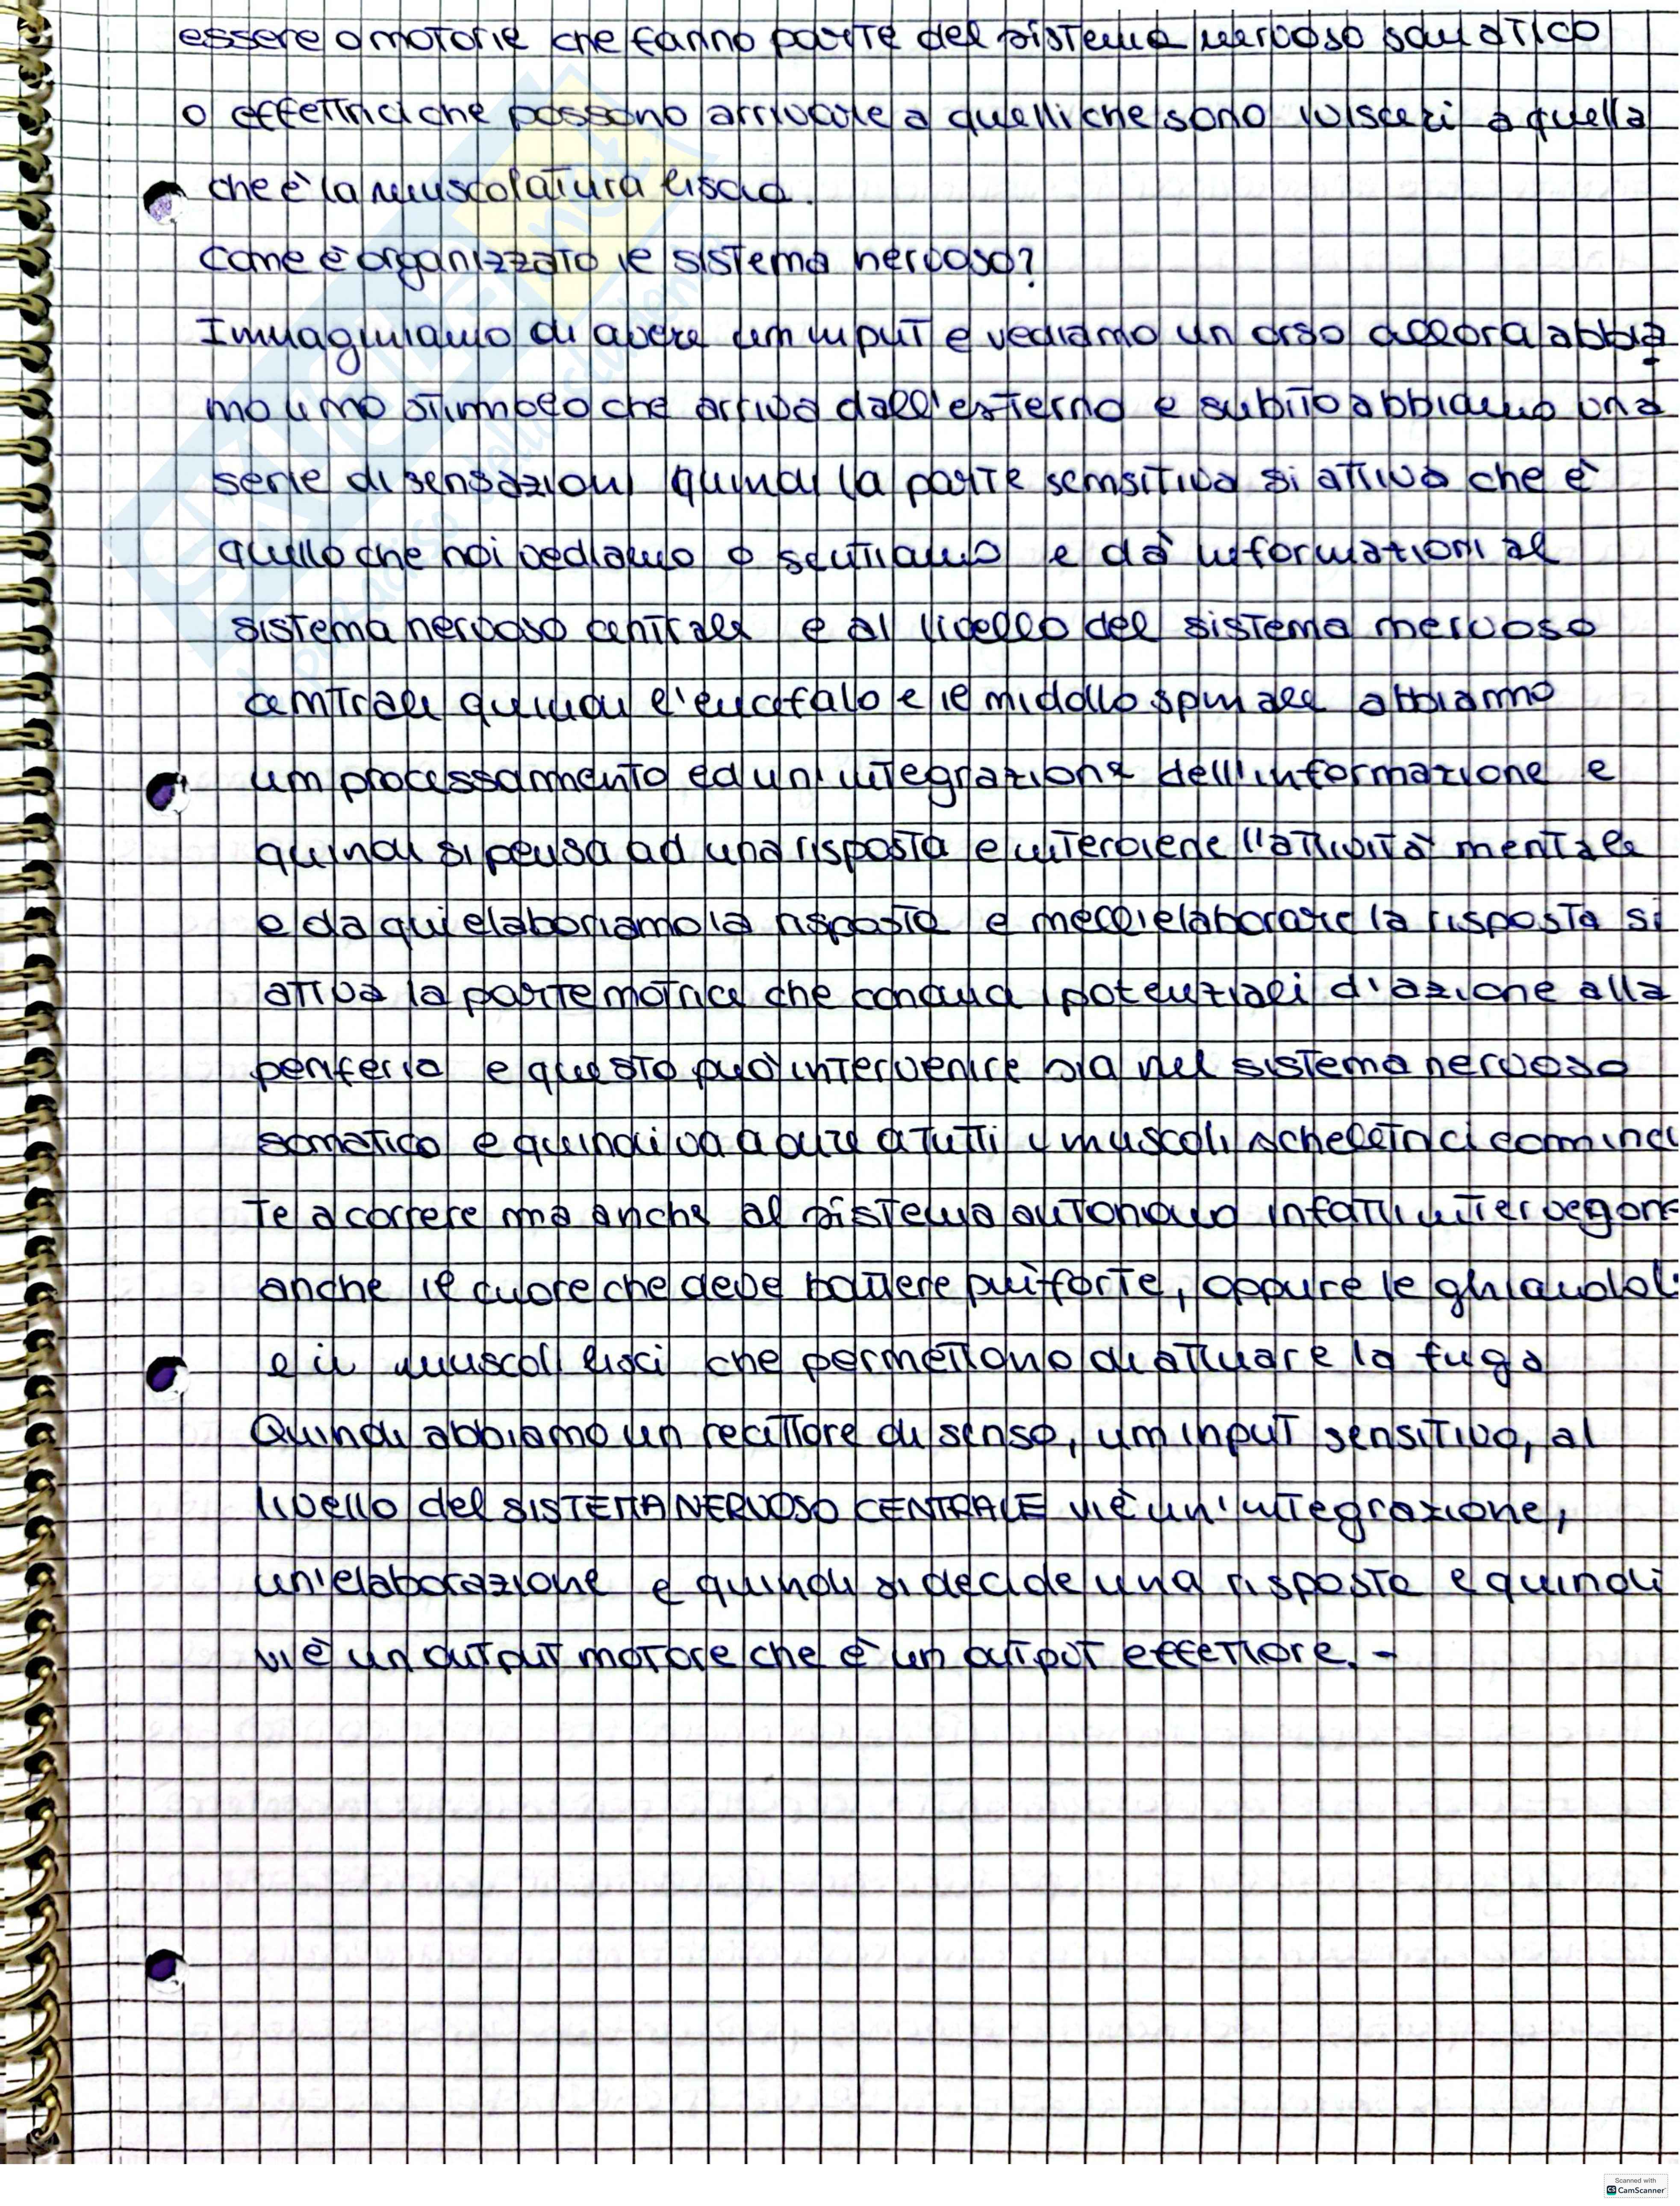 essere o motorie che fanno parte del sistema nervoso somatico
o effettrici che possono arrivare a quelli che sono i visceri a quella
che è la muscolatura liscia.
Come è organizzato il sistema nervoso?
Immaginiamo di avere un input e vediamo un orso allora abbia
mo uno stimolo che arriva dall'esterno e subito abbiamo una
serie di sensazioni quindi la parte sensitiva si attiva che è
quello che noi vediamo o sentiamo e dà informazioni al
sistema nervoso centrale e al livello del sistema nervoso
centrale quindi l'encefalo e il midollo spinale abbiamo
un processamento ed un'integrazione dell'informazione e
quindi si pensa ad una risposta e interviene l'attività mentale
e da qui elaboriamo la risposta e nell'elaborare la risposta si
attiva la parte motrice che conduce i potenziali d'azione alla
periferia e questo può intervenire sia nel sistema nervoso
somatico e quindi va a dire a tutti i muscoli scheletrici cominci
te a correre ma anche al sistema autonomo infatti intervegono
anche il cuore che deve battere più forte, oppure le ghiandole
e i muscoli lisci che permettono di attuare la fuga
Quindi abbiamo un recettore di senso, un input sensitivo, al
livello del SISTEMA NERVOSO CENTRALE vi è un'integrazione,
un'elaborazione e quindi si decide una risposta e quindi
vi è un output motore che è un output effettore. -
SKUOLA.net
il paradiso dello studente
Scanned with
CS CamScanner